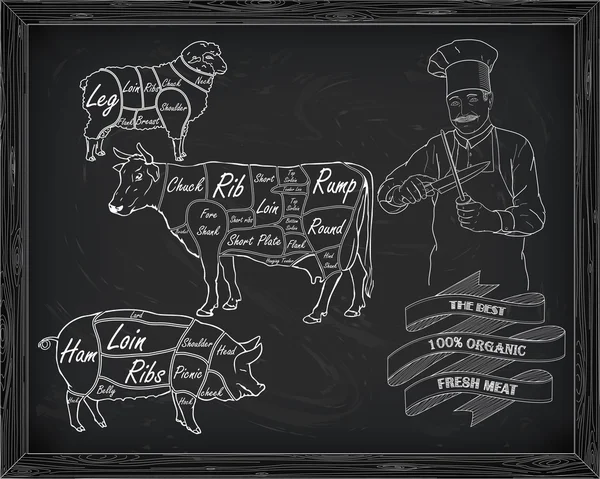 Leg
Loin
Ribs
Chuck
Neck
Shoulder
Flank
Breast
Chuck
Rib
Short
Loin
Top
Sirloin
Tender Loin
Top
Sirloin
Bottom
Sirloin
Rump
Round
Fore
Shank
Short ribs
Short Plate
Flank
Hanging Tender
Hind
Shank
Lard
Ham
Loin
Ribs
Shoulder
Head
Picnic
Cheek
Belly
Hock
THE BEST
100% ORGANIC
FRESH MEAT